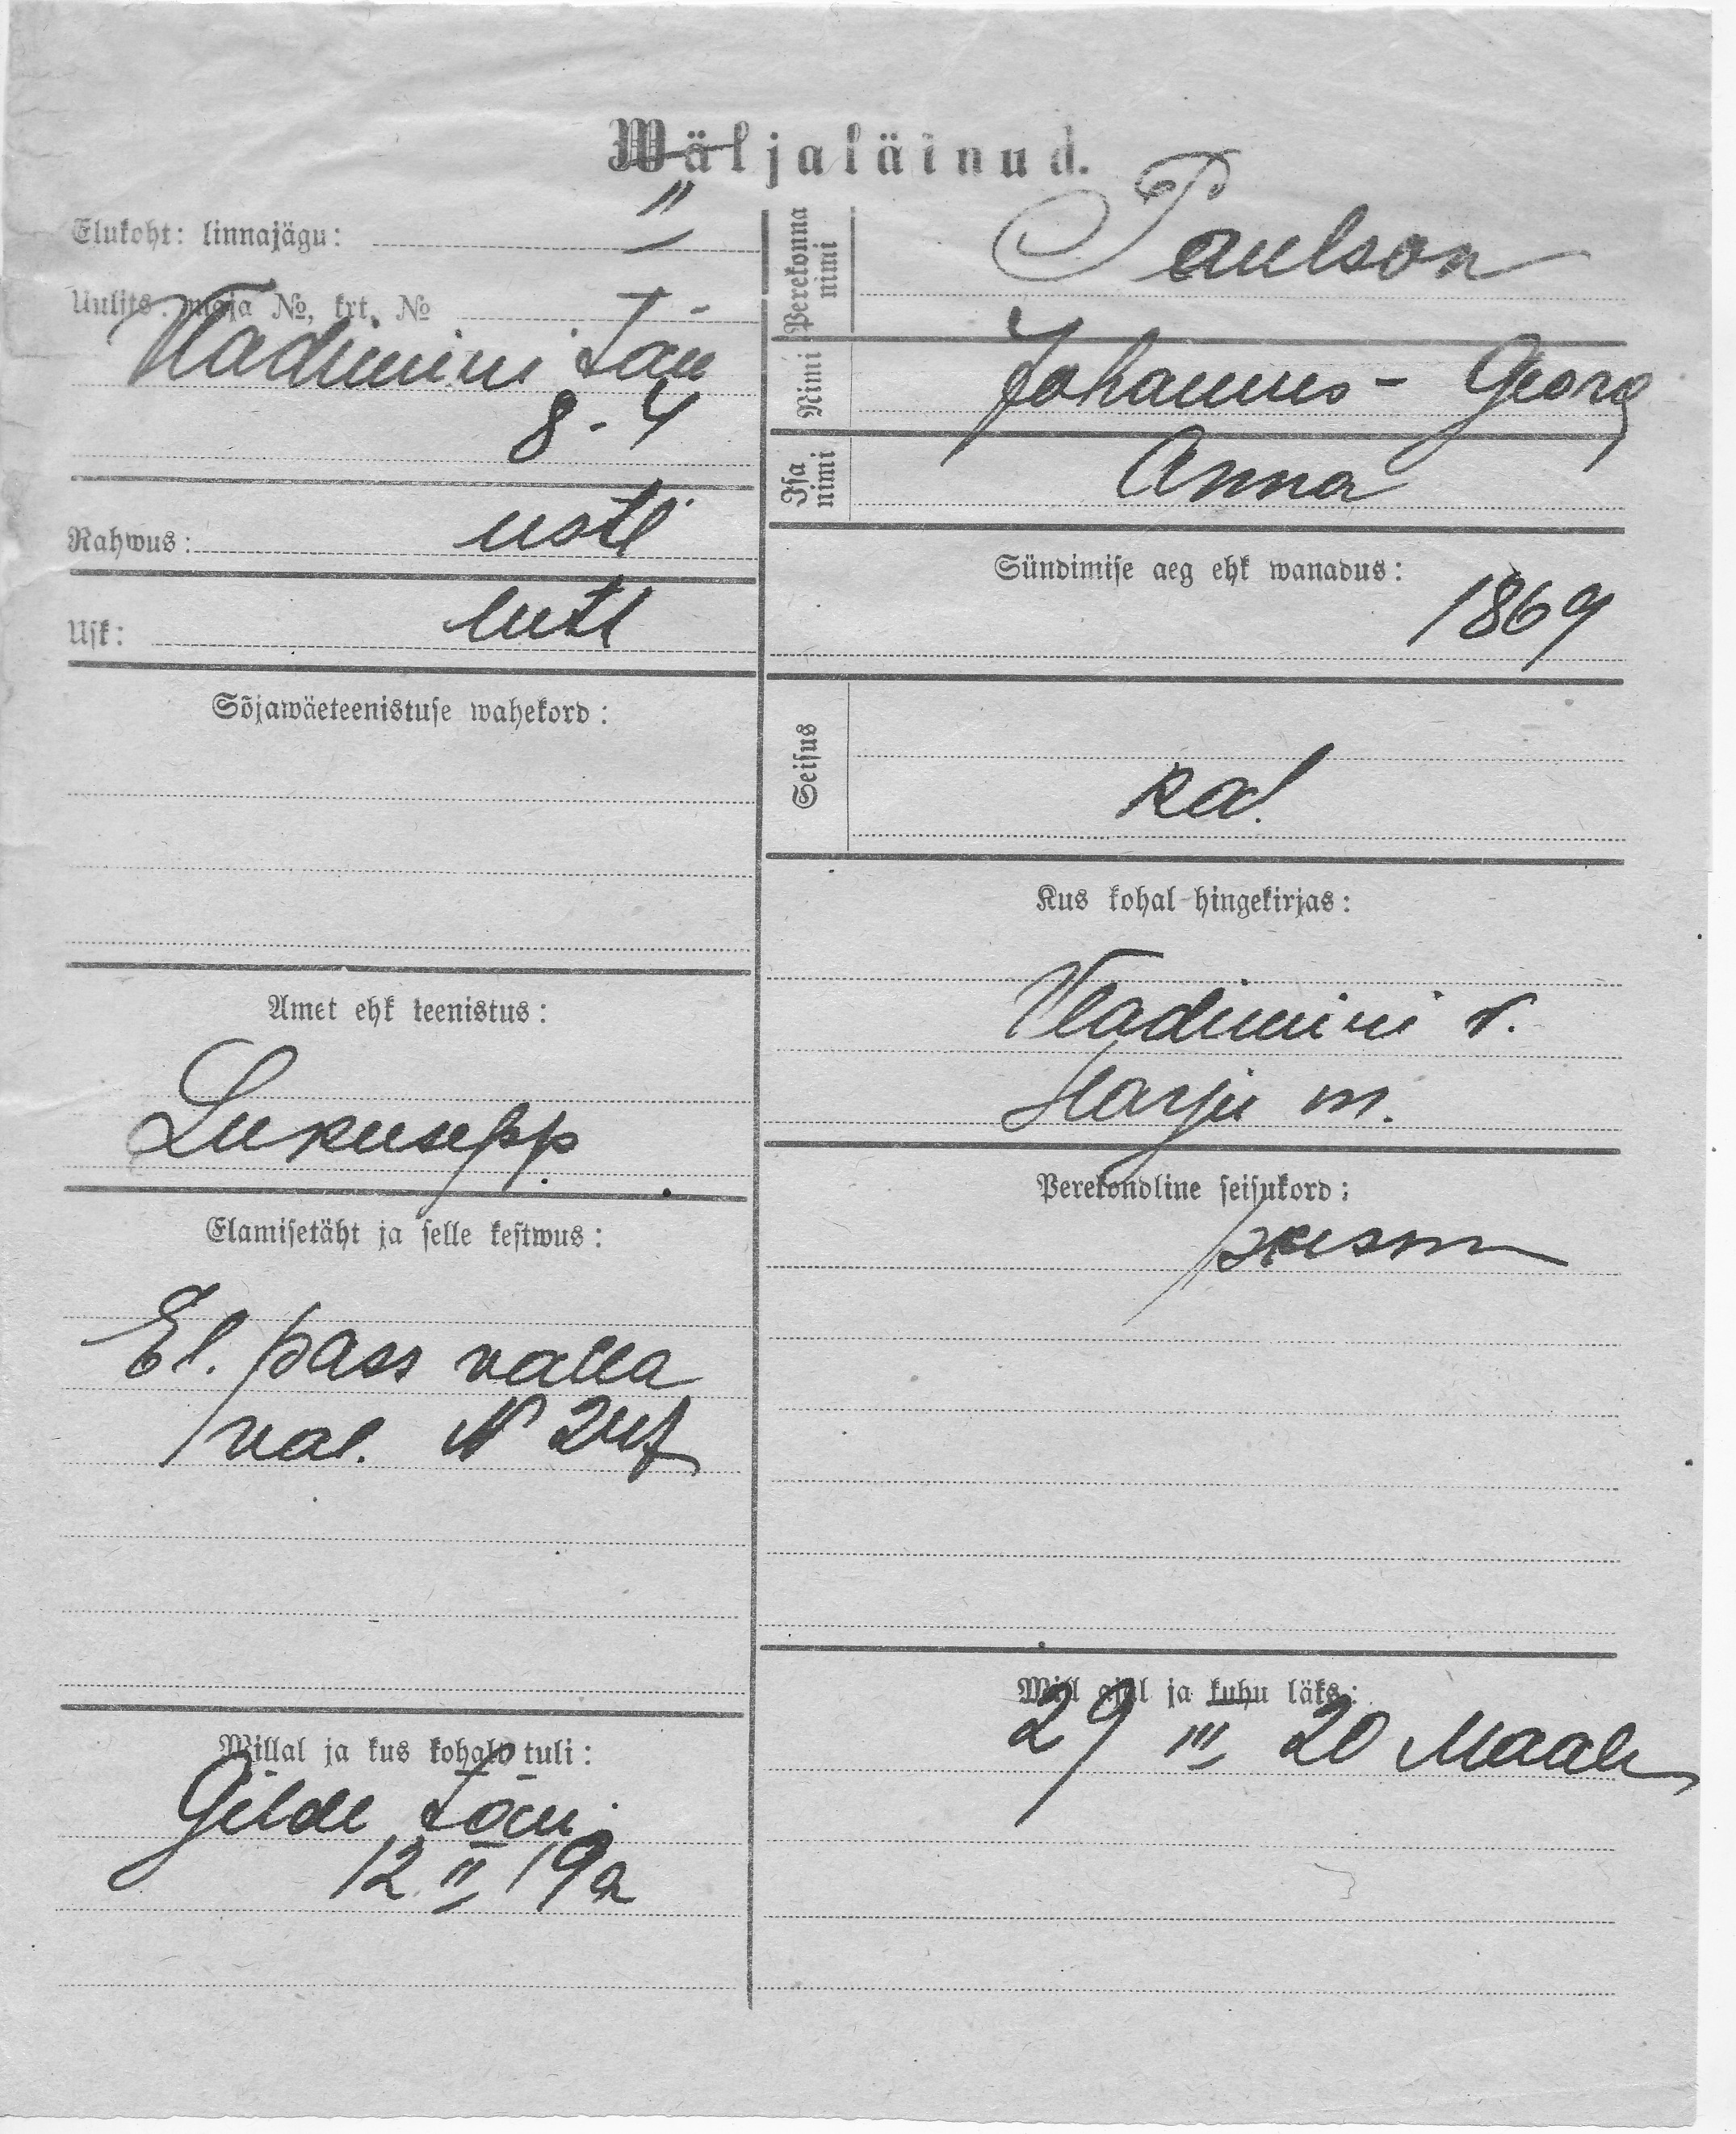 Wäljaläinud.
Elukoht: linnajägu: II
Uulits. maja №, krt. № T
Vladimiri tän
8-4
Rahwus: eestl.
Usk: lutl
Sõjawäeteenistuse wahekord:
Amet ehk teenistus:
Lukusepp.
Elamisetäht ja selle kestwus:
El. pass valla
val. №
Willal ja kus kohalt tuli:
Gilde tän.
12 II 19 a
Perekonna nimi
Paulson
Nimi
Johannes - Georg
Isa nimi
Anna
Sündimise aeg ehk wanadus:
1869
Seisus
Kus kohal hingekirjas:
Vladimiri v.
Harju m.
Perekondline seisukord:
Mill ajal ja kuhu läks:
29 III 20 Maale